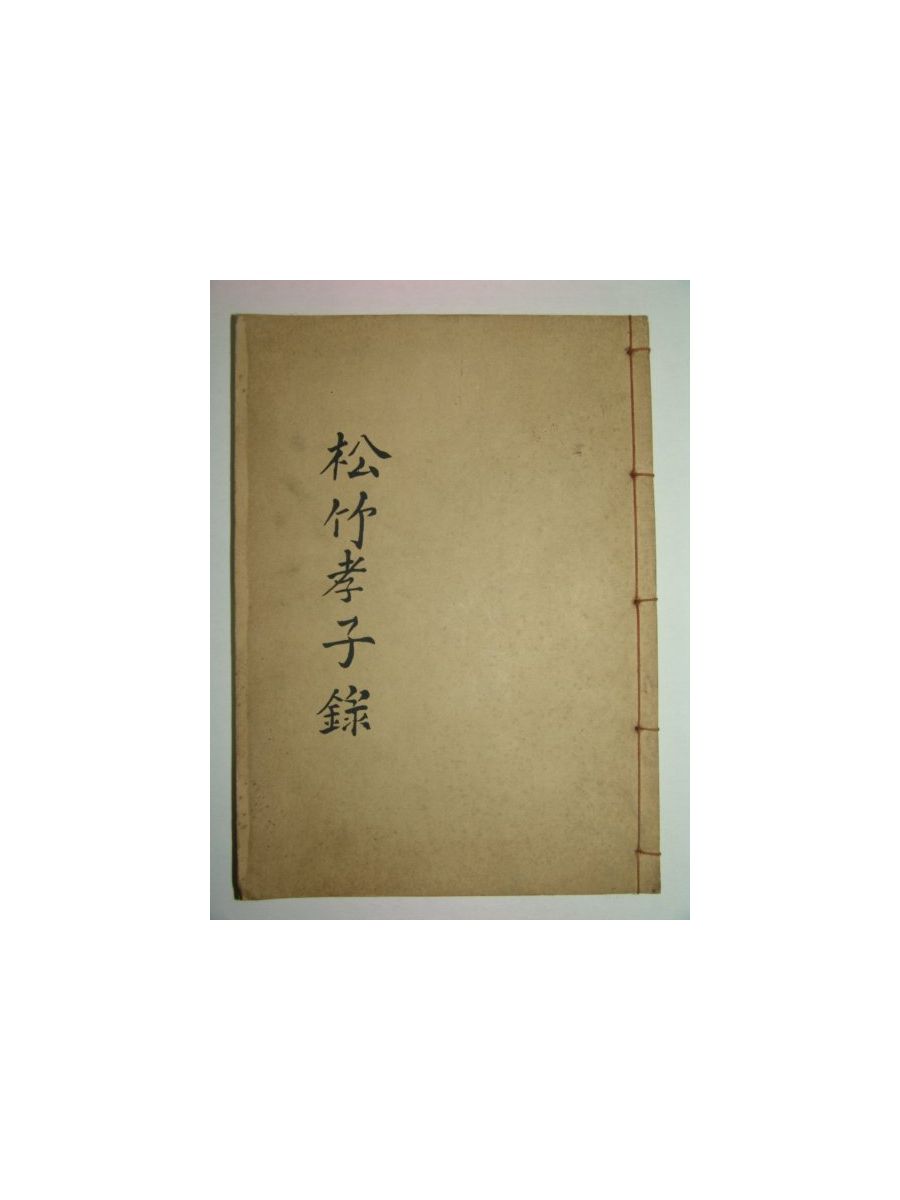 松竹孝子錄